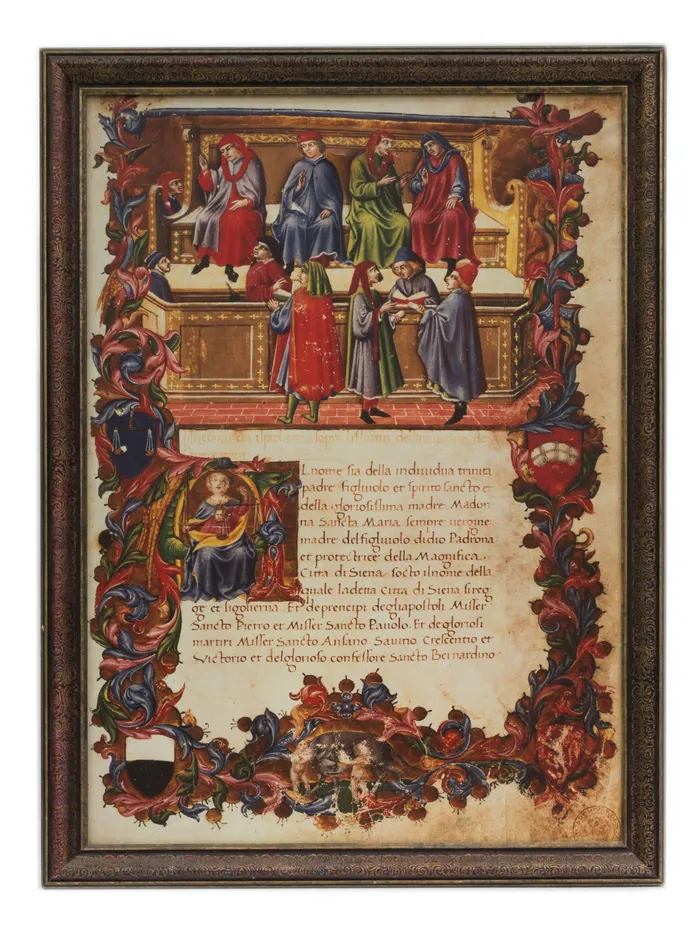 I nome sia della individua trinita
padre figliuolo et spirito sancto e
della gloriosissima madre Madon
na Sancta Maria sempre vergine
madre del figliuolo didio Padrona
et protectrice della Magnifica
Citta di Siena socto ilnome della
quale ladeta Citta di Siena si reg
ge et sighoverna Et deprencipi degliapostoli Misser
Sancto Pietro et Misser Sancto Pauolo. Et degloriosi
martiri Misser Sancto Ansano Savino Crescentio et
Victorio et delglorioso confessore Sancto Bernardino